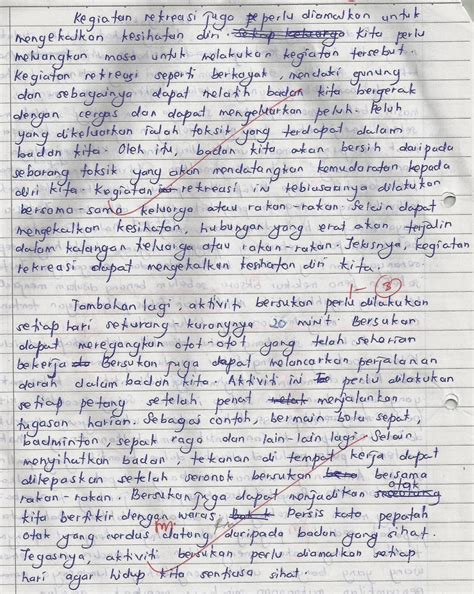 Kegiatan rekreasi juga perlu diamalkan untuk
mengekalkan kesihatan diri. Kita perlu
meluangkan masa untuk melakukan kegiatan tersebut.
Kegiatan rekreasi seperti berkayak, mendaki gunung
dan sebagainya dapat melatih badan kita bergerak
dengan cergas dan dapat mengeluarkan peluh. Peluh
yang dikeluarkan ialah toksik yang terdapat dalam
badan kita. Oleh itu, badan kita akan bersih daripada
sebarang toksik yang akan mendatangkan kemudaratan kepada
diri kita. Kegiatan rekreasi in kebiasaanya dilakukan
bersama-sama keluarga atau rakan-rakan. Selain dapat
mengekalkan kesihatan, hubungan yang erat akan terjalin
dalam kalangan keluarga atau rakan-rakan. Jelasnya, kegiatan
rekreasi dapat mengekalkan kesihatan diri kita.
3
Tambahan lagi, aktiviti bersukan perlu dilakukan
setiap hari sekurang-kurangnya 20 minit. Bersukan
dapat meregangkan otot-otot yang telah seharian
bekerja. Bersukan juga dapat melancarkan perjalanan
darah dalam badan kita. Aktiviti in perlu dilakukan
setiap petang setelah penat menjalankan
tugasan harian. Sebagai contoh, bermain bola sepak,
badminton, sepak raga dan lain-lain lagi. Selain
menyihatkan badan, tekanan di tempat kerja dapat
dilepaskan setelah seronok bersukan bersama
rakan-rakan. Bersukan juga dapat menjadikan otak
kita berfikir dengan waras. Persis kata pepatah
otak yang cerdas datang daripada badan yang sihat.
Tegasnya, aktiviti bersukan perlu diamalkan setiap
hari agar hidup kita sentiasa sihat.